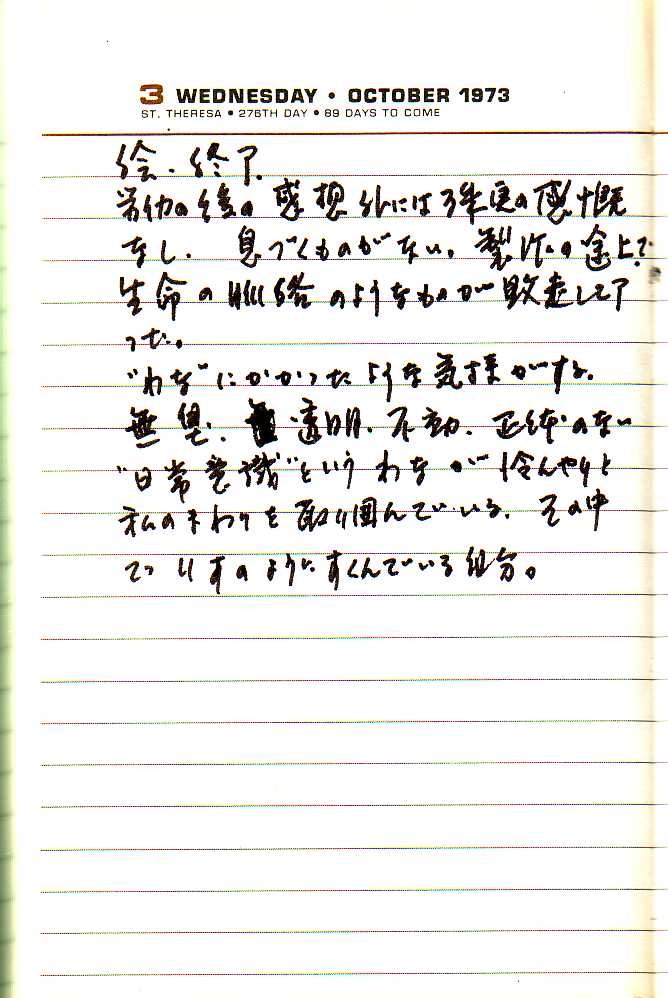 3 WEDNESDAY • OCTOBER 1973
ST. THERESA • 276TH DAY • 89 DAYS TO COME
絵・終了.
労仂の後の感想外には の感慨
なし. 息づくものがない。製作の途上で
生命の脈絡のようなものが敗走して了
った。
"わな"にかかったような気様がする.
無臭. 透明. 不動. 正体のない
"日常意識"というわなが冷んやりと
私のまわりを取り囲んでいる. その中
で りすのようにすくんでいる自分。